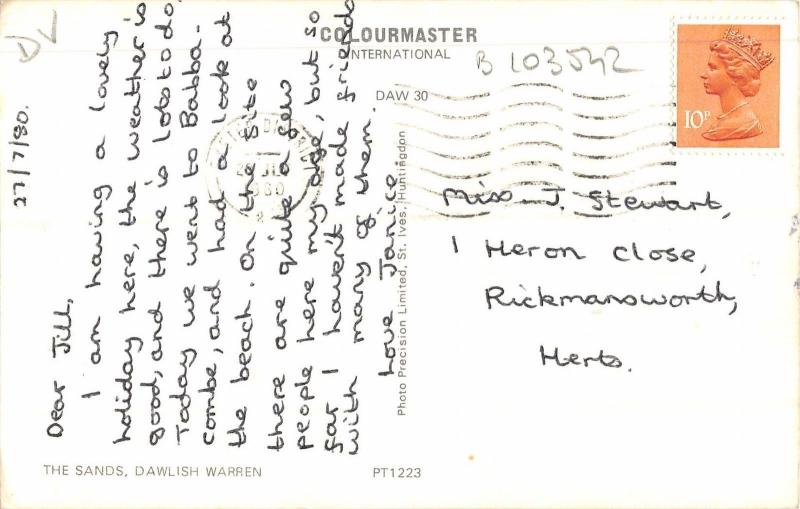 DV
COLOURMASTER
INTERNATIONAL
B 103542
DAW 30
10P
27/7/80.
Dear Jill,
I am having a lovely
holiday here, the weather is
good, and there is lots to do.
Today we went to Babba-
combe, and had a look at
the beach. On the site
there are quite a few
people here my age, but so
far I haven't made friends
with many of them.
Love Janice.
Photo Precision Limited, St. Ives, Huntingdon
Miss J. Stewart,
1 Heron Close,
Rickmansworth,
Herts.
THE SANDS, DAWLISH WARREN
PT1223